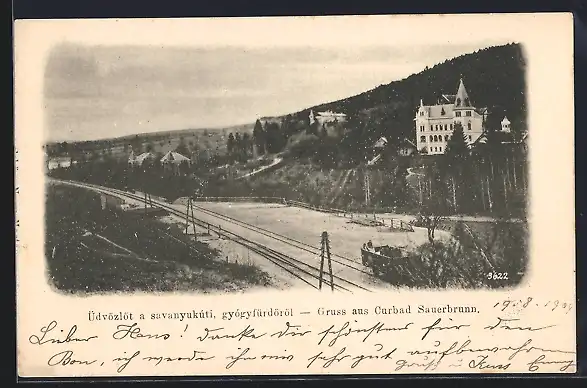 9622
Üdvözlöt a savanyukúti, gyógyfürdöröl — Gruss aus Curbad Sauerbrunn.
Lieber Hans! danke dir schönstens für den
Bon, ich werde ihn mir sehr gut aufbewahren
gruß u Kuss